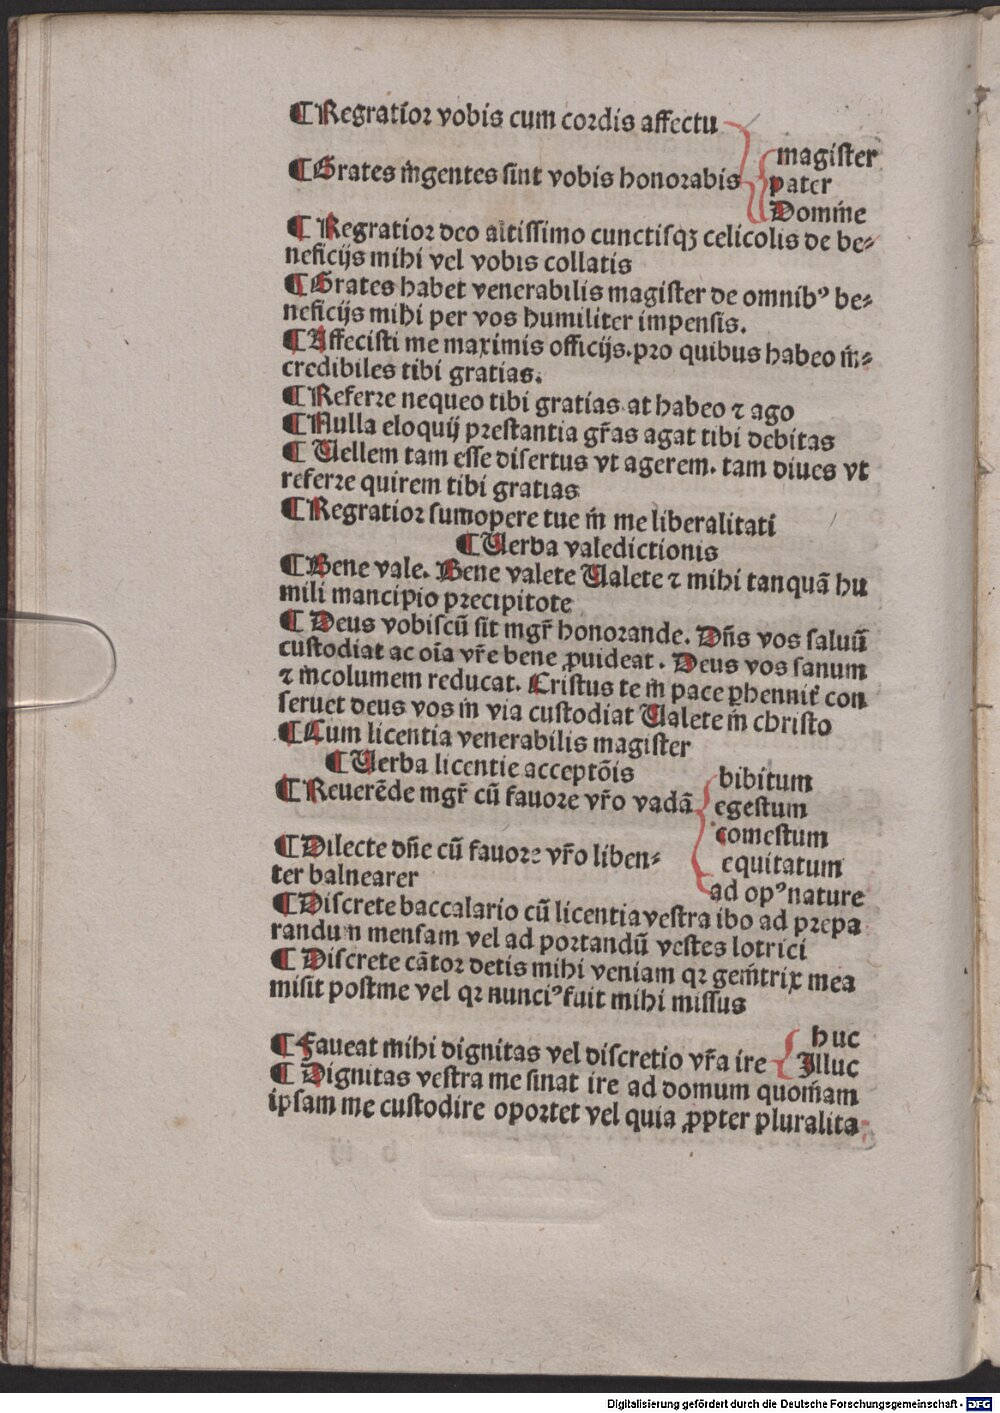 ¶ Regratior vobis cum cordis affectu
magister
¶ Grates ingentes sint vobis honorabis pater
Domine
¶ Regratior deo altissimo cunctisqꝫ celicolis de be⸗
neficijs mihi vel vobis collatis
¶ Grates habet venerabilis magister de omnibꝰ be⸗
neficijs mihi per vos humiliter impensis.
¶ Affecisti me maximis officijs. pro quibus habeo in⸗
credibiles tibi gratias.
¶ Referre nequeo tibi gratias at habeo ⁊ ago
¶ Nulla eloquij prestantia gr̄as agat tibi debitas
¶ Uellem tam esse disertus vt agerem. tam diues vt
referre quirem tibi gratias
¶ Regratior sumopere tue in me liberalitati
¶ Uerba valedictionis
¶ Bene vale. Bene valete Ualete ⁊ mihi tanquā hu
mili mancipio precipitote
¶ Deus vobiscū sit mgr̄ honorande. Dn̄s vos saluū
custodiat ac oīa vr̄e bene ꝓuideat. Deus vos sanum
⁊ incolumem reducat. Cristus te in pace ꝑhennit̄ con
seruet deus vos in via custodiat Ualete in christo
¶ Cum licentia venerabilis magister
¶ Uerba licentie acceptōis
bibitum
¶ Reuerēde mgr̄ cū fauore vr̄o vadā egestum
comestum
¶ Dilecte dn̄e cū fauore vr̄o liben⸗ equitatum
ter balnearer ad opꝰ nature
¶ Discrete baccalario cū licentia vestra ibo ad prepa
randum mensam vel ad portandū vestes lotrici
¶ Discrete cātor detis mihi veniam qr genitrix mea
misit postme vel qr nunciꝰ fuit mihi missus
huc
¶ Faueat mihi dignitas vel discretio vr̄a ire Illuc
¶ Dignitas vestra me sinat ire ad domum quoniam
ipsam me custodire oportet vel quia ꝓpter pluralita⸗
Digitalisierung gefördert durch die Deutsche Forschungsgemeinschaft - DFG